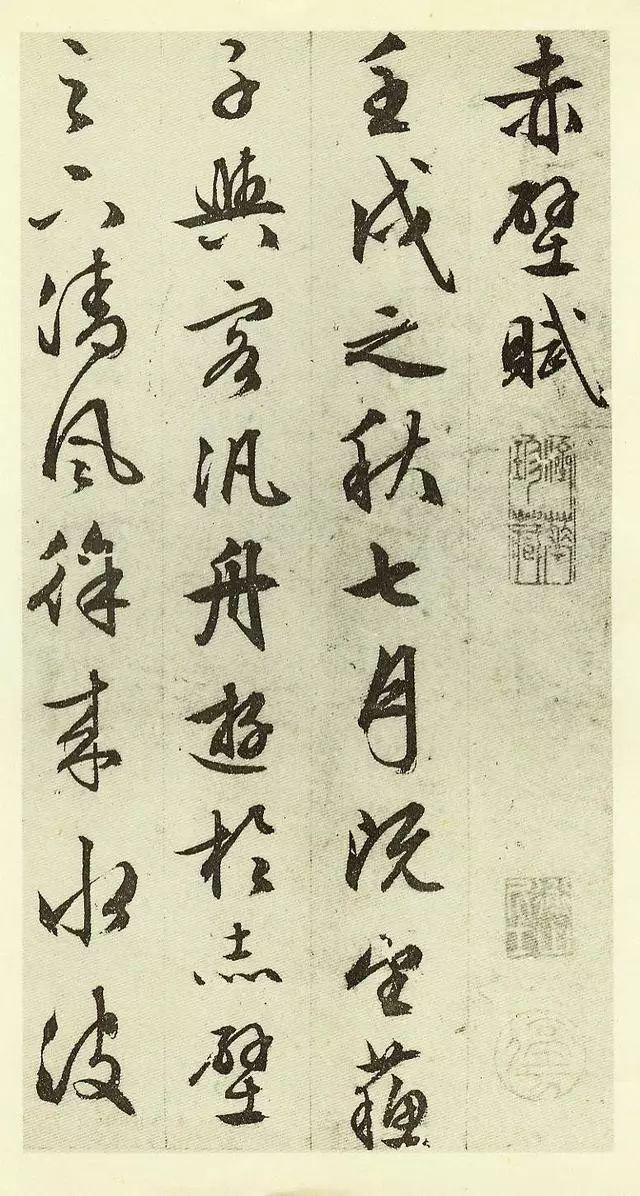 赤壁賦
壬戌之秋七月既望蘇
子與客汎舟遊於赤壁
之下清風徐来水波